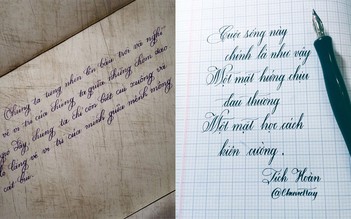 Chúng ta từng nhìn lên bầu trời và nghĩ
về vị trí của chúng ta giữa những chòm sao
Giờ đây, chúng ta chỉ còn biết cúi xuống và
lo lắng về vị trí của mình giữa mênh mông
cát bụi.
Cuộc sống này
chính là như vậy
Một mặt hứng chịu
đau thương
Một mặt học cách
kiên cường.
Tích Hoàn